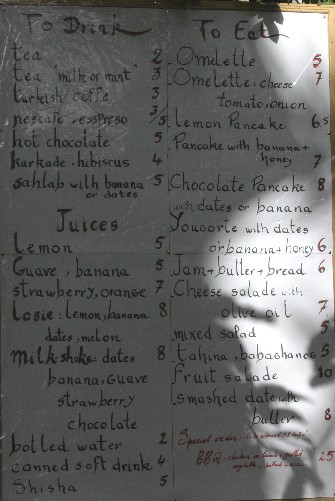 To Drink
tea 2
tea "milk or mint" 3
turkish coffe 3
nescafe, esspreso 3/5
hot chocolate 5
karkade - hibiscus 4
sahlab with banana 5
or dates
Juices
Lemon 5
Guave, banana 5
strawberry, orange 7
Losie: lemon, banana 8
dates, melon
Milk shake: dates 8
banana, Guave
strawberry
chocolate
botled water 2
canned soft drink 4
Shisha 5
To Eat
Omelette 5
Omelette: cheese 7
tomato, onion
Lemon Pancake 6.5
Pancake with banana +
honey 7
Chocolate Pancake 8
with dates or banana
Yougorte with dates
or banana + honey 6
Jam + butter + bread 6
Cheese salade with
olive oil 7
mixed salad 5
tahina, babaghanoe 5
Fruit salade 10
smashed date with
butter 8
Special order:
BBQ: chicken or lamb, grilled 25